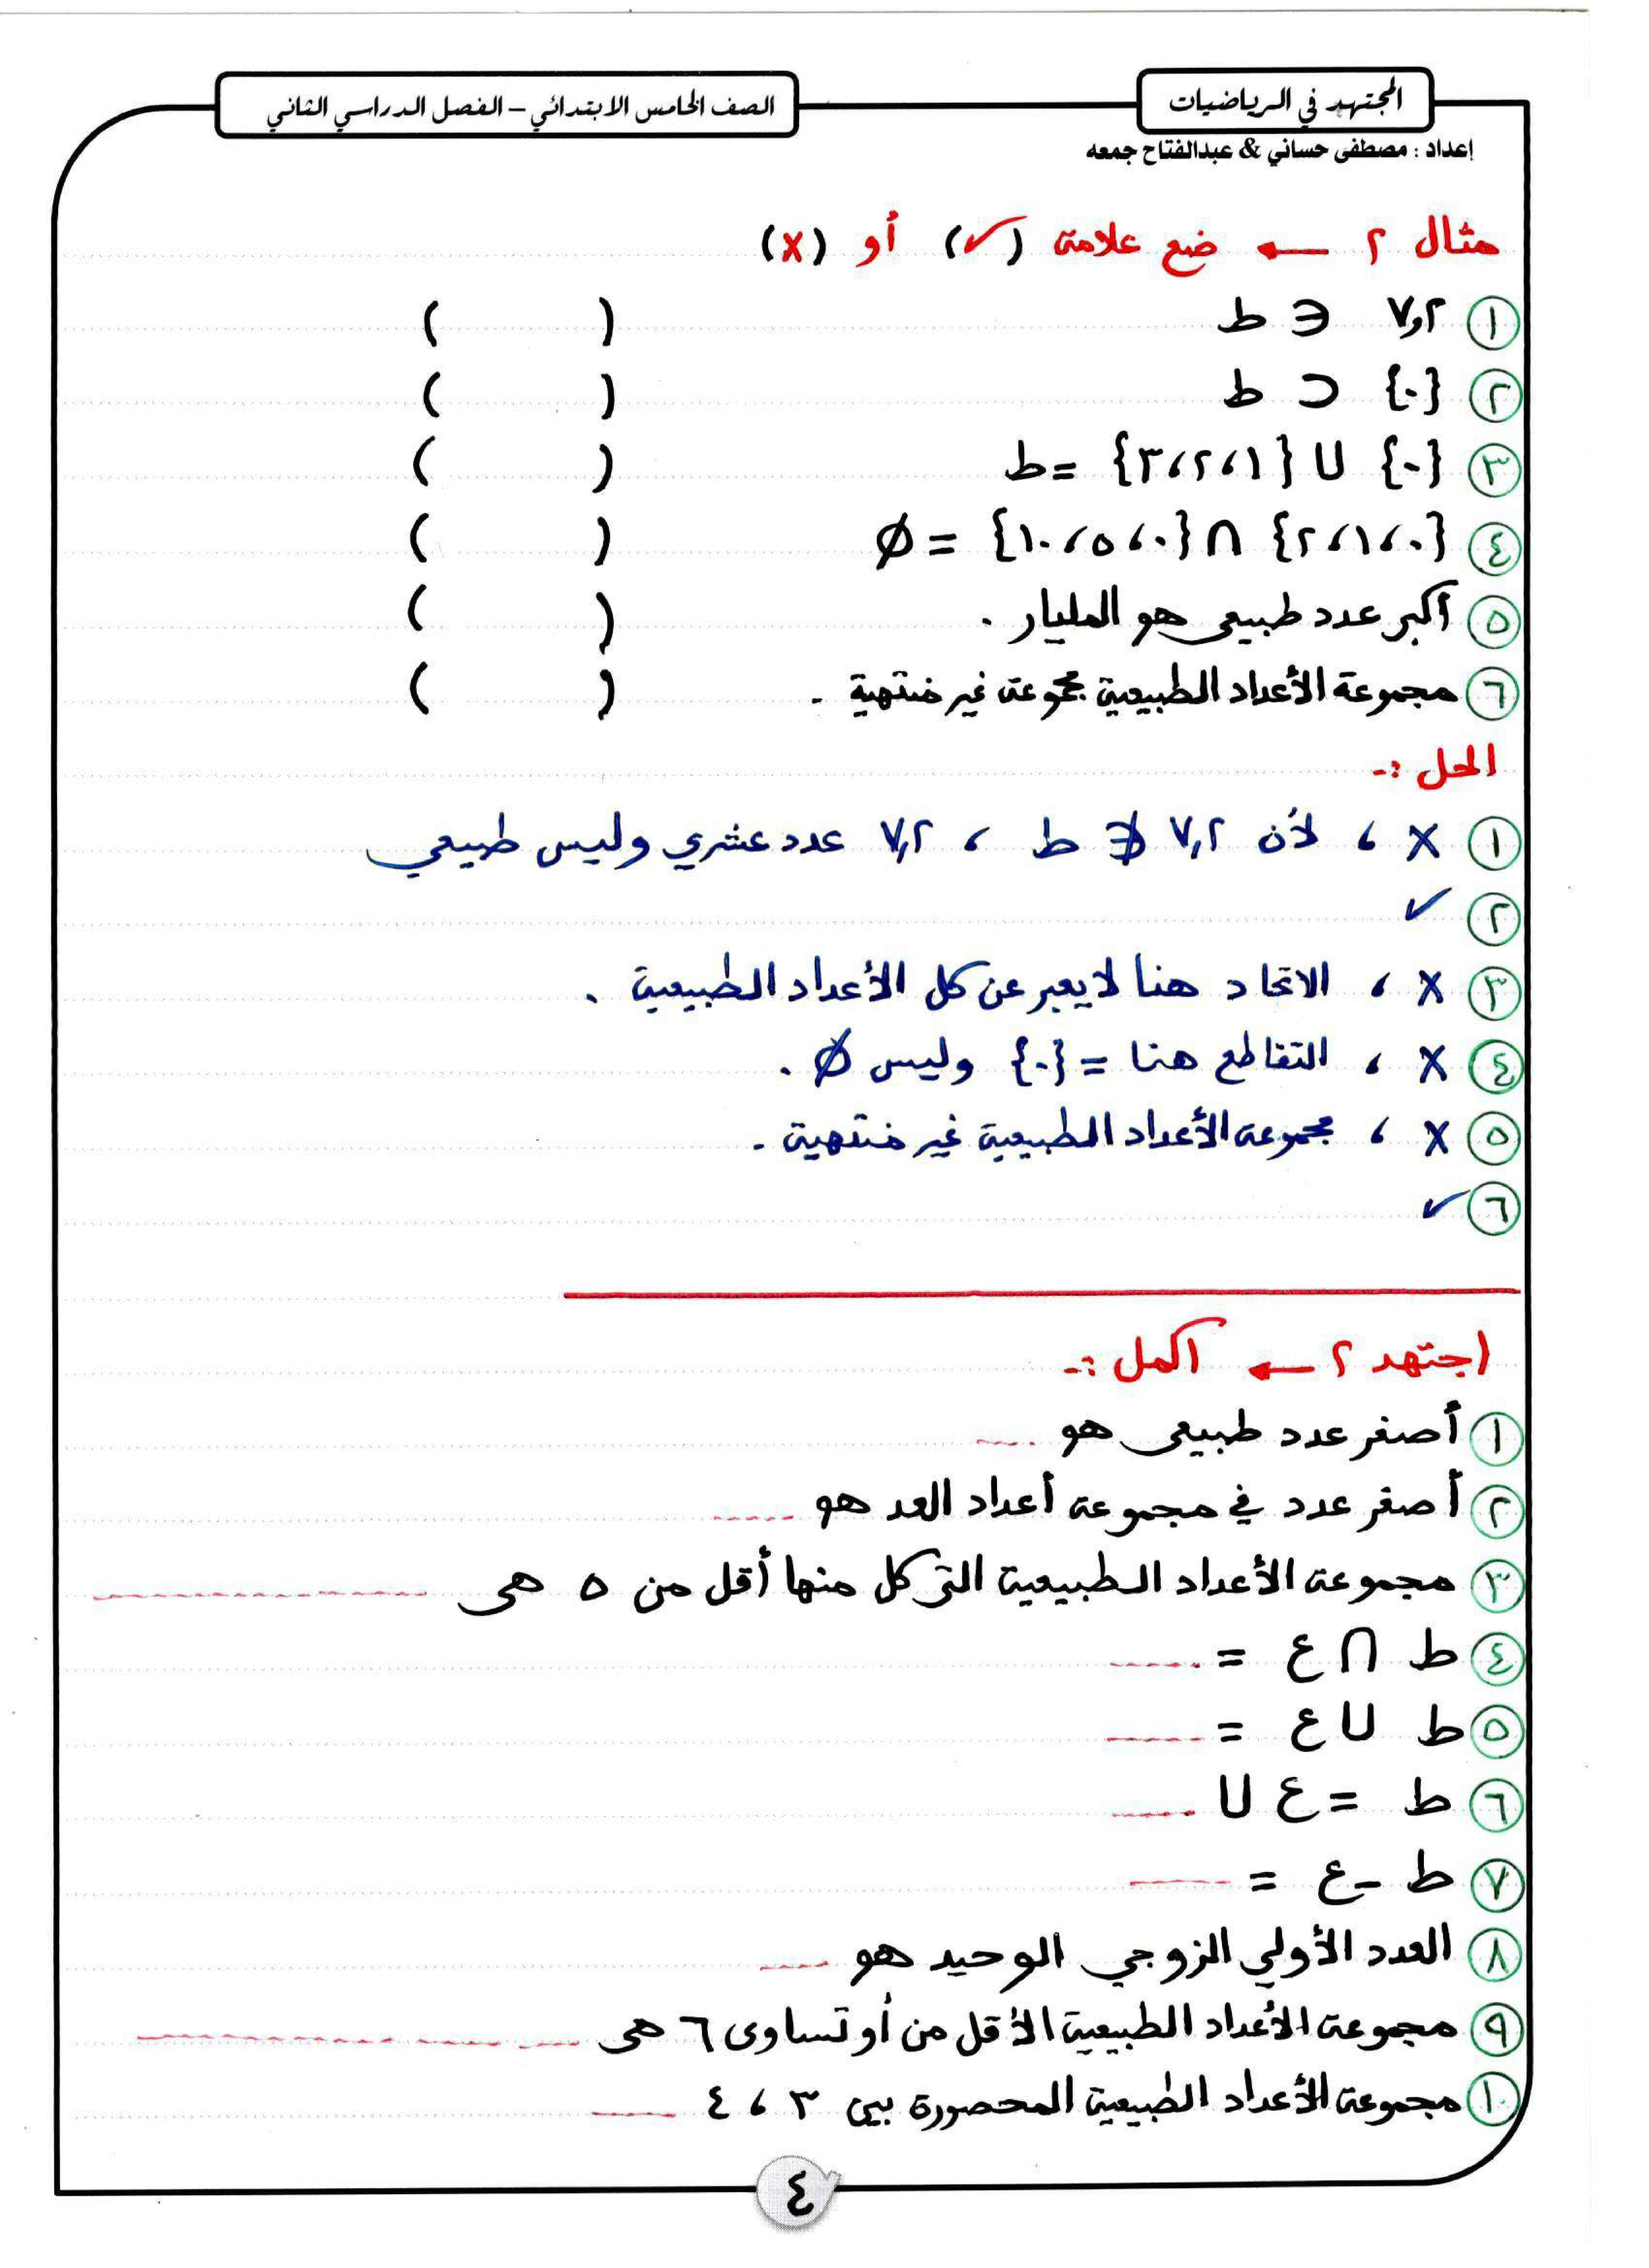 المجتهد في الرياضيات
الصف الخامس الابتدائي – الفصل الدراسي الثاني
إعداد : مصطفى حساني & عبدالفتاح جمعه
مثال ٢ ← ضع علامة (✓) أو (x)
١ ٧,٢ ∈ ط ( )
٢ {٠} ⊂ ط ( )
٣ {٠} ∪ {١، ٢، ٣} = ط ( )
٤ {٠، ١، ٢} ∩ {٠، ٥، ١٠} = Ø ( )
٥ أكبر عدد طبيعي هو المليار . ( )
٦ مجموعة الأعداد الطبيعية مجموعة غير منتهية . ( )
الحل :-
١ x ، لأن ٧,٢ ∉ ط ، ٧,٢ عدد عشري وليس طبيعي
٢ ✓
٣ x ، الاتحاد هنا لا يعبر عن كل الأعداد الطبيعية .
٤ x ، التقاطع هنا = {٠} وليس Ø .
٥ x ، مجموعة الأعداد الطبيعية غير منتهية .
٦ ✓
اجتهد ٢ ← أكمل :-
١ أصغر عدد طبيعي هو ....
٢ أصغر عدد في مجموعة أعداد العد هو .....
٣ مجموعة الأعداد الطبيعية التي كل منها أقل من ٥ هي ..............
٤ ط ∩ ع = .....
٥ ط ∪ ع = .....
٦ ط = ع ∪ .....
٧ ط - ع = .....
٨ العدد الأولي الزوجي الوحيد هو ....
٩ مجموعة الأعداد الطبيعية الأقل من أو تساوى ٦ هي ..............
١٠ مجموعة الأعداد الطبيعية المحصورة بين ٣ ، ٤ .....
٤